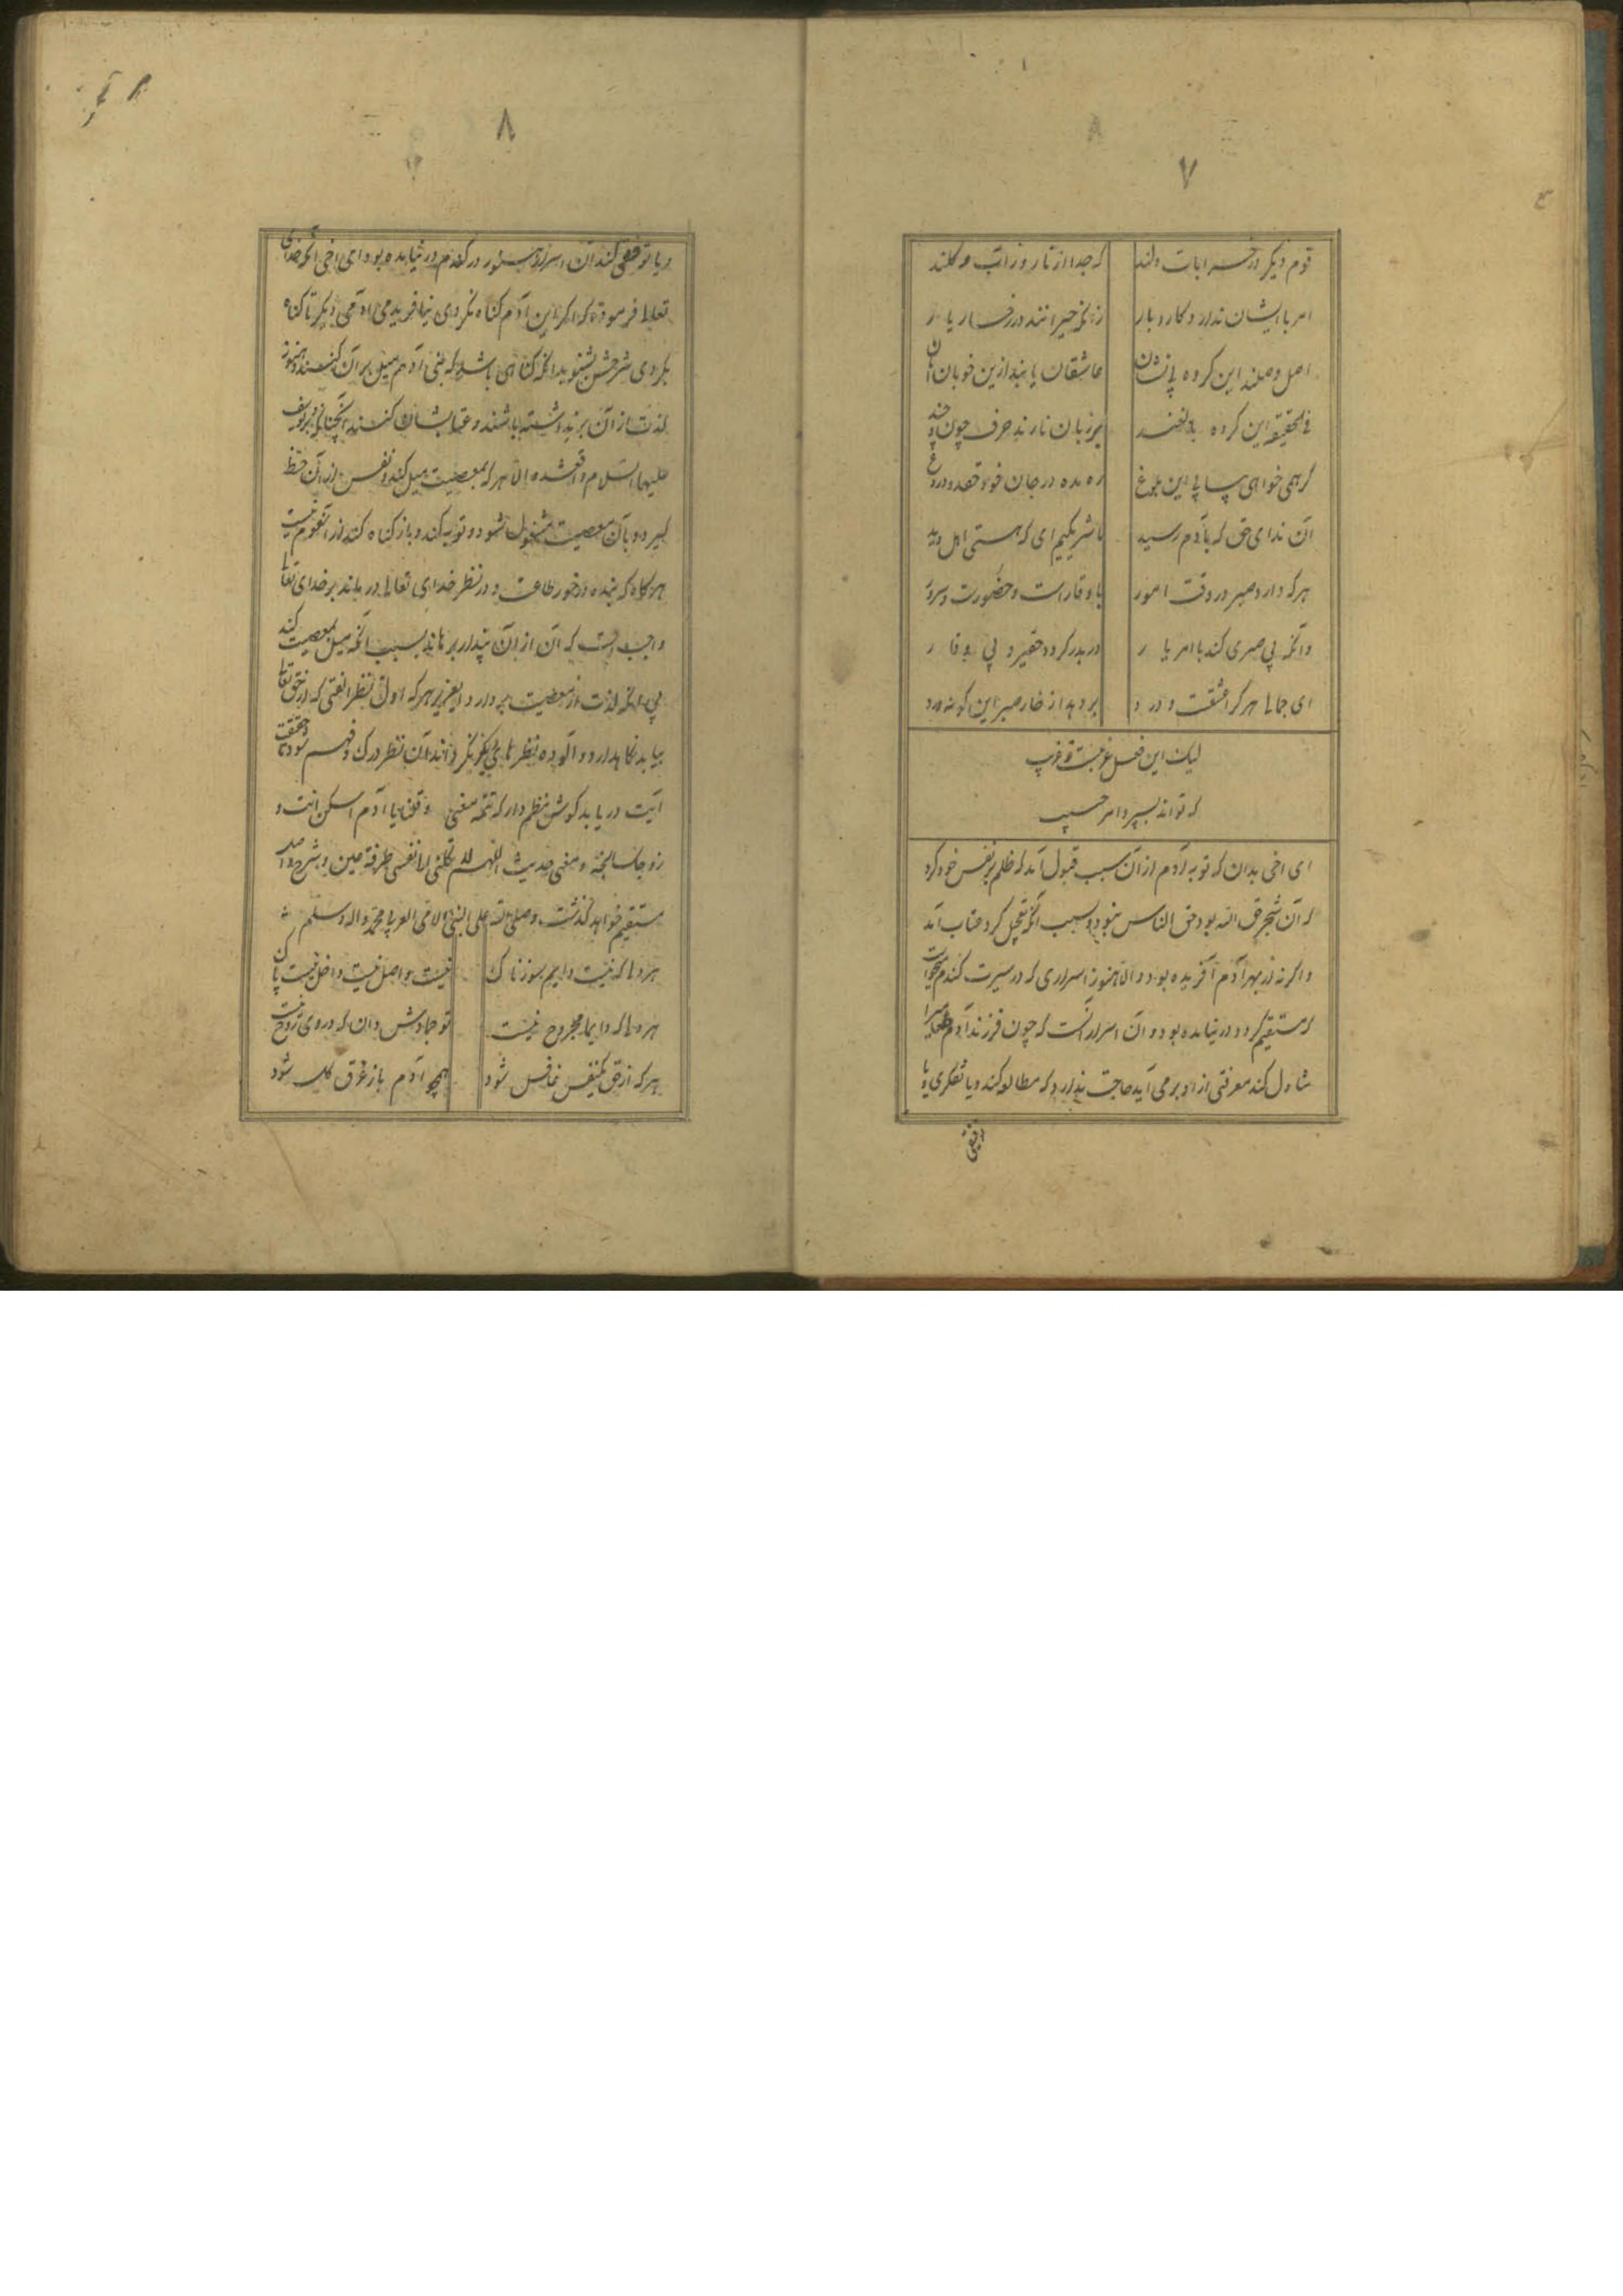 ۷
قوم دیکر در خرابات دلند
که جدا از تار وز آب و کلند
امر با ایشان ندارد کار و بار
زانکه حیرانند در رخسار یار
اصل وصلند این کروه بی نشان
عاشقان یابند ازین خوبان امان
فی الحقیقه این کروه
بر زبان نارند حرف چون و چند
کر همی خواهی بیابی این بلوغ
ره مده در جان خود قصد و دروغ
آن ندای حق که بآدم رسید
با شریکیم ای که هستی اهل دید
هر که دارد صبر در وقت امور
با وقار است و حضورت و سرور
وانکه بی صبری کند با امر یار
دربدر کردد حقیر و بی وقار
ای جمالی هر کرا عشقست و درد
بر دهد از خار صبر این کونه ورد
لیک این فصل غریبست و غریب
که تواند بسپرد امر حسیب
ای اخی بدان که توبه آدم از آن سبب قبول آمد که ظلم بر نفس خود کرد
که آن شجر حق الله بود حق الناس نبود و بسبب آنکه تعجیل کرد عتاب آمد
و اکر نه از بهر آدم آفریده بود و الا هنوز اسراری که در سیرت کندم میخواست
که مستقیم کردد در نیامده بود و آن اسرار آنست که چون فرزند آدم طعام را
تناول کند معرفتی از او برمی آید حاجت ندارد که مطالعه کند و یا تفکری و یا
توقفی
۸
و یا توقفی کند آن اسرار هنوز در کندم در نیامده بود ای اخی آنکه خدای
تعالی فرموده که اکر این آدم کناه نکردی نیافریدمی آدمی دیکر تا کناه
بکردی شرحش بشنو بدانکه کناهی باشد که بنی آدم میل بر آن کنند و هنوز
لذت از آن برنداشته باشند و عتابشان کنند آنچنانکه بر یوسف
علیها السلام واقع شده الا هر که بمعصیت میل کند و نفس از آن حظ
کیرد و بآن معصیت مشغول شود و توبه کند و باز کناه کند از آنقوم نیست
هرکاه که بنده در خور طاعت و در نظر خدای تعالی در ماند بر خدای تعالی
واجبست که آن از آن پندار برهاند بسبب آنکه میل بمعصیت کند
بی آنکه لذت از معصیت بردارد ایعزیز هر که اول نظر انعتی که از حق تعالی
بیابد نکاهدارد و آلوده بنظرهای دیکر نکرداند آن نظر درک و فهم شود و حقیقت
آیت دریابد کوش بنظم دار که تتمه معنی و قلنا یا آدم اسکن انت و
زوجک الجنه و معنی حدیث اللهم لا تکلنی الی نفسی طرفة عین و شرح صراط
مستقیم خواهد کذشت و صلی الله علی النبی الامی العربی محمد و اله و سلم
هر دلی که نیست دایم سوزناک
نیست واصل نیست داخل نیست پاک
هر دلی که دایما مجروح نیست
تو جمادش دان که در وی روح نیست
هر که از حق یکنفس غافل شود
همچو آدم باز غرق کل شود